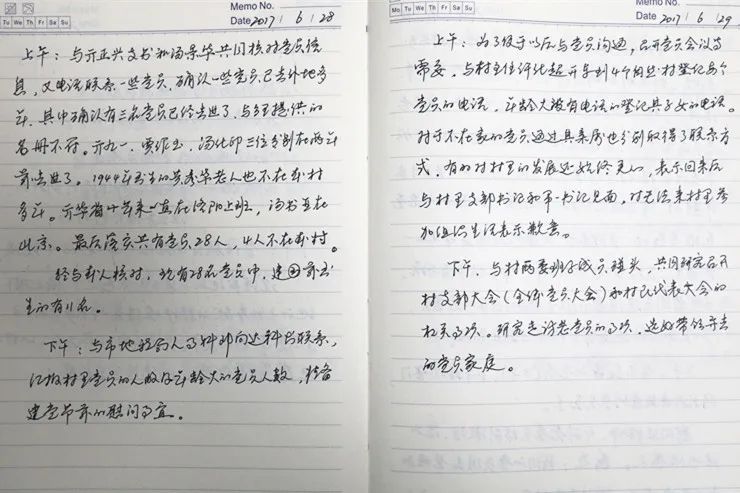 Memo No.
Tu We Th Fr Sa Su
Date 2017 / 6 / 28
上午：与亓正兴支书和汤景华共同核对党员信
息，又电话联系一些党员，确认一些党员已去外地多
年，其中确认有三名党员已经去世了，与镇提供的
名册不符。亓九一、贾作玉、汤化印三位分别在两年
前去世了。1944年出生的吴秀华老人也不在本村
多年。亓华省十年来一直在洛阳上班，汤书亚在
北京。最后落实共有党员28人，4人不在本村。
经与本人核对，现有28名党员中，建国前出
生的有11名。
下午：与市地税局人事科和向达科长联系，
汇报村里党员的人数及年龄大的党员人数，准备
建党节前的慰问事宜。
Memo No.
Mo Tu We Th Fr Sa Su
Date 2017 / 6 / 29
上午：为了便于以后与党员沟通，召开党员会议等
需要，与村主任评比超开车到4个自然村登记每个
党员的电话，年龄大没有电话的登记其子女的电话。
对于不在家的党员通过其亲属也分别取得了联系方
式，有的对村里的发展还始终关心，表示回来后
与村里支部书记和第一书记见面，对无法来村里参
加组织生活表示歉意。
下午，与村两委班子成员碰头，共同研究召开
村支部大会(全体党员大会)和村民代表大会的
相关事项。研究走访老党员的事项，选好带领前去
的党员家庭。